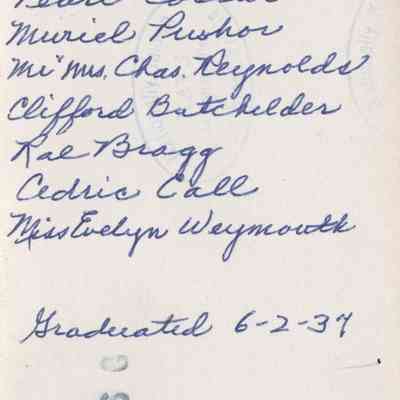 Muriel Pushor
Mr Mrs. Chas. Reynolds
Clifford Batchelder
Rae Bragg
Cedric Call
Miss Evelyn Weymouth
Graduated 6-2-37